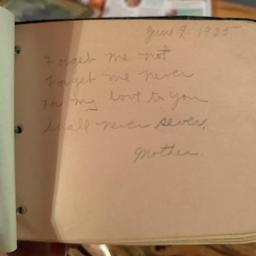 June 9, 1935
Forget me not
Forget me never
For my love to you
shall never sever.
Mother.